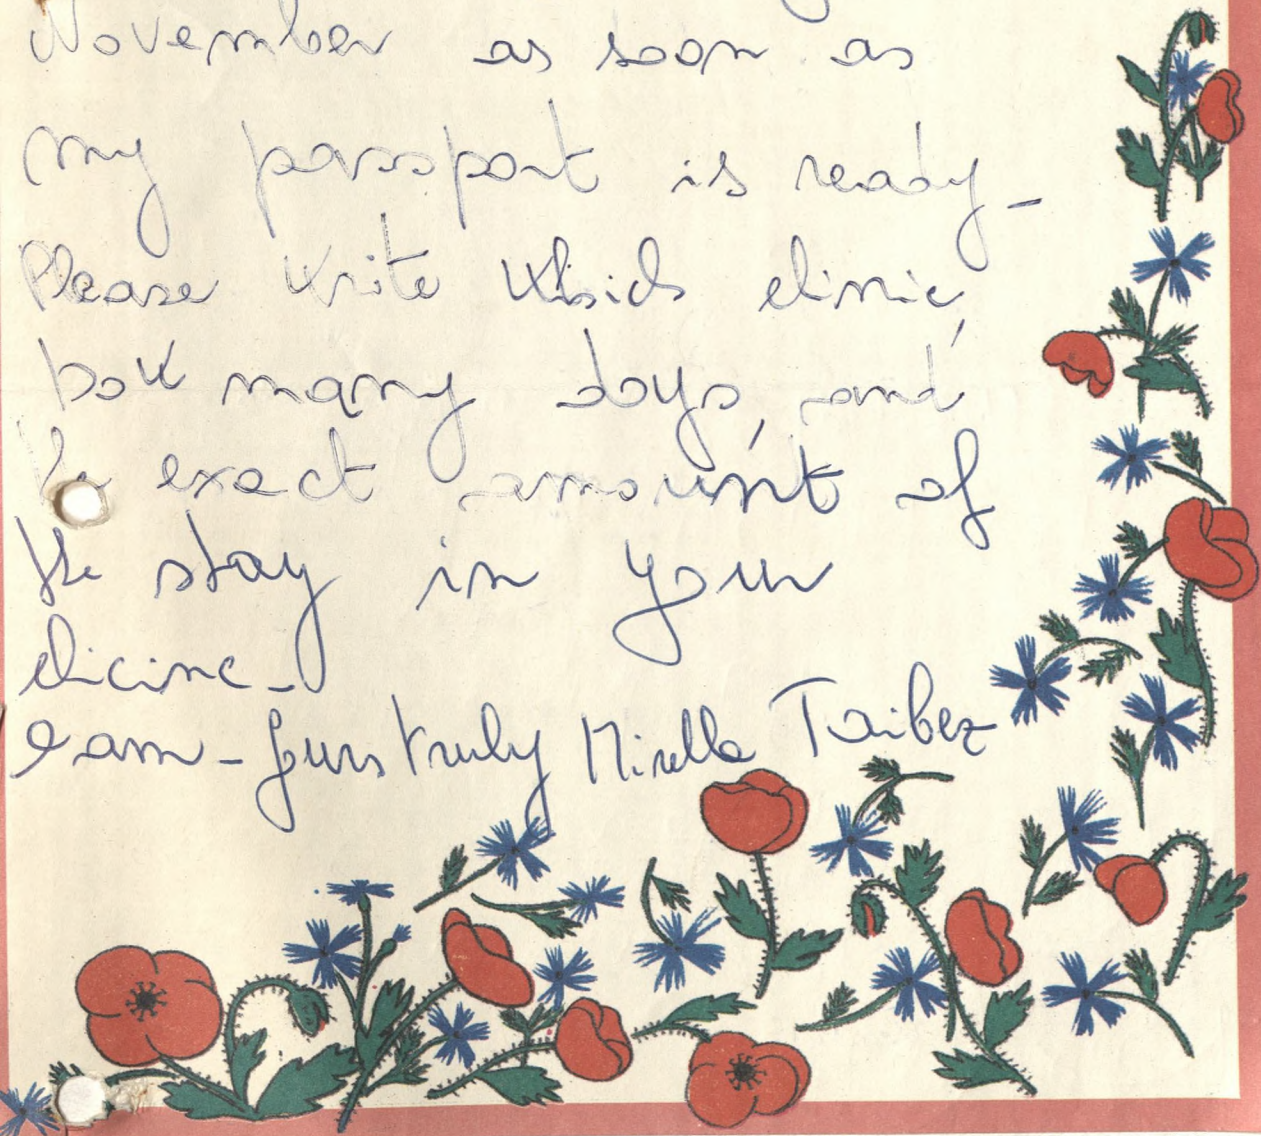 November as soon as
my passport is ready_
Please write which clinic,
how many days, and
the exact amount of
the stay in your
clicinc_
I am_ Yours truly Mirella